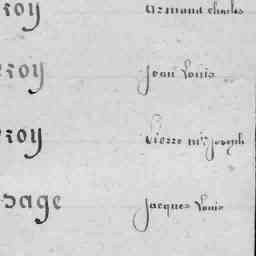 roy Armand Charles
eroy Jean Louis
eroy Pierre Mie Joseph
sage Jacques Louis